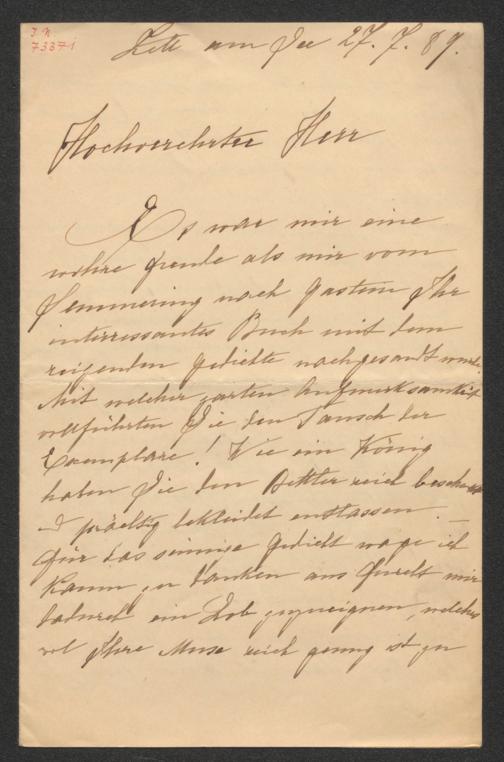 J. N.
73371
Zell am See 27. 7. 89.
Hochverehrter Herr
Es war mir eine
wahre Freude als mir vom
Semmering nach Gastein Ihr
interressantes Buch mit dem
reizenden Gedichte nachgesandt wurde.
Mit welcher zarten Aufmerksamkeit
vollführten Sie den Tausch der
Exemplare! Wie ein König
haben Sie den Bettler reich beschenkt
u prächtig bekleidet entlassen. —
Für das sinnige Gedicht wage ich
kaum zu danken aus Furcht mir
dadurch ein Lob zuzueignen, welches
wol Ihre Muse reich genug ist zu